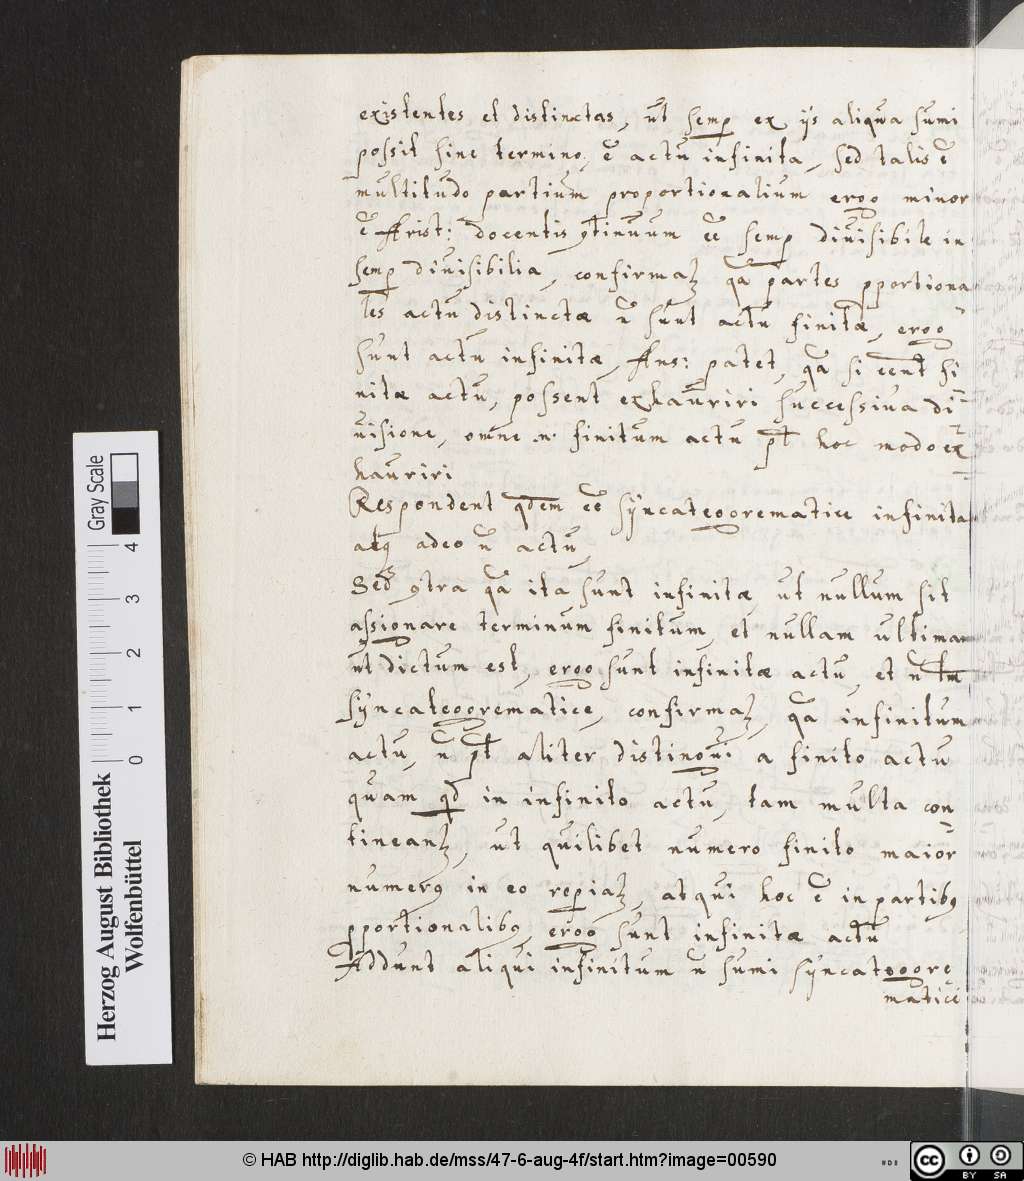 existentes et distinctas, ut semp ex ijs aliqua sumi
possit sine termino, ē actu infinita, sed talis ē
multitudo partium proportionalium ergo minor
ē Arist: docentis 9tinuum eē semp diuisibile in
semp diuisibilia, confirmaꝫ qa partes pportiona
les actu distinctæ n̄ sunt actu finitæ, ergo
sunt actu infinitæ, Ans: patet, qa si eent fi
nitæ actu, possent exhauriri successiua di
uisione, omne .n. finitum actu pt hoc modo ex
hauriri
Respondent qdem eē syncategorematice infinita
atq adeo n̄ actu,
Sed 9tra qa ita sunt infinitæ, ut nullum sit
assignare terminum finitum, et nullam ultimam
ut dictum est, ergo sunt infinitæ actu, et n̄ tm
syncategorematice, confirmaꝫ, qa infinitum
actu, n̄ pt aliter distingui a finito actu
quam qd in infinito actu, tam multa con
tineanꝫ, ut quilibet numero finito maior
numer9 in eo reperiaꝫ, atqui hoc ē in partib9
pportionalib9, ergo sunt infinitæ actu
Addunt aliqui infinitum n̄ sumi syncategore
matice
Gray Scale
4
3
2
1
0
Herzog August Bibliothek
Wolfenbüttel
© HAB http://diglib.hab.de/mss/47-6-aug-4f/start.htm?image=00590
cc BY SA